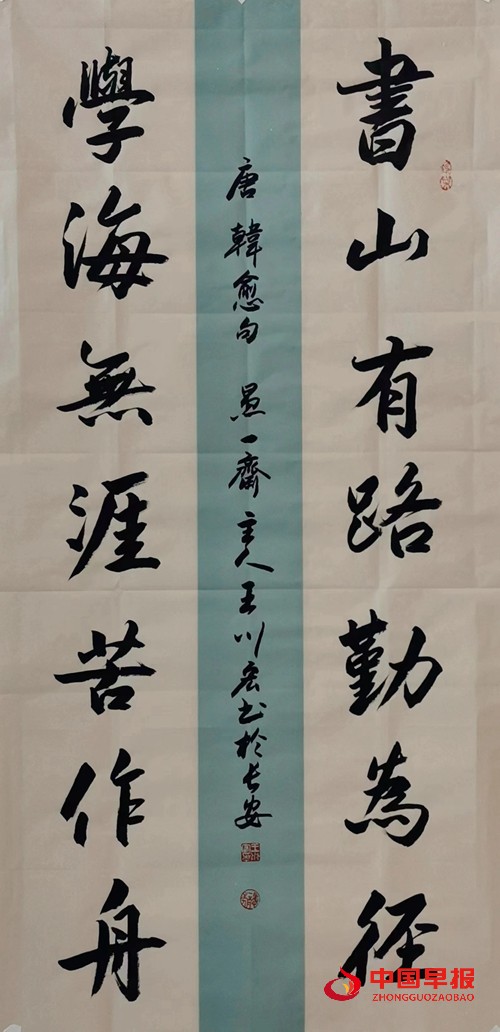 書山有路勤為徑
學海無涯苦作舟
唐韓愈句 愚一齋主人王川宏书於长安
中国早报
ZHONGGUOZAOBAO